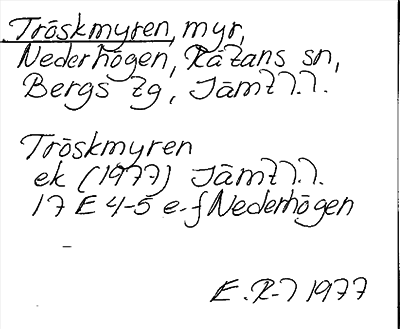 Tröskmyren, myr,
Nederhögen, Rätans sn,
Bergs tg, Jämtl.
Tröskmyren
ek (1977) Jämtl.
17 E 4-5 e-f Nederhögen
E.R-7 1977